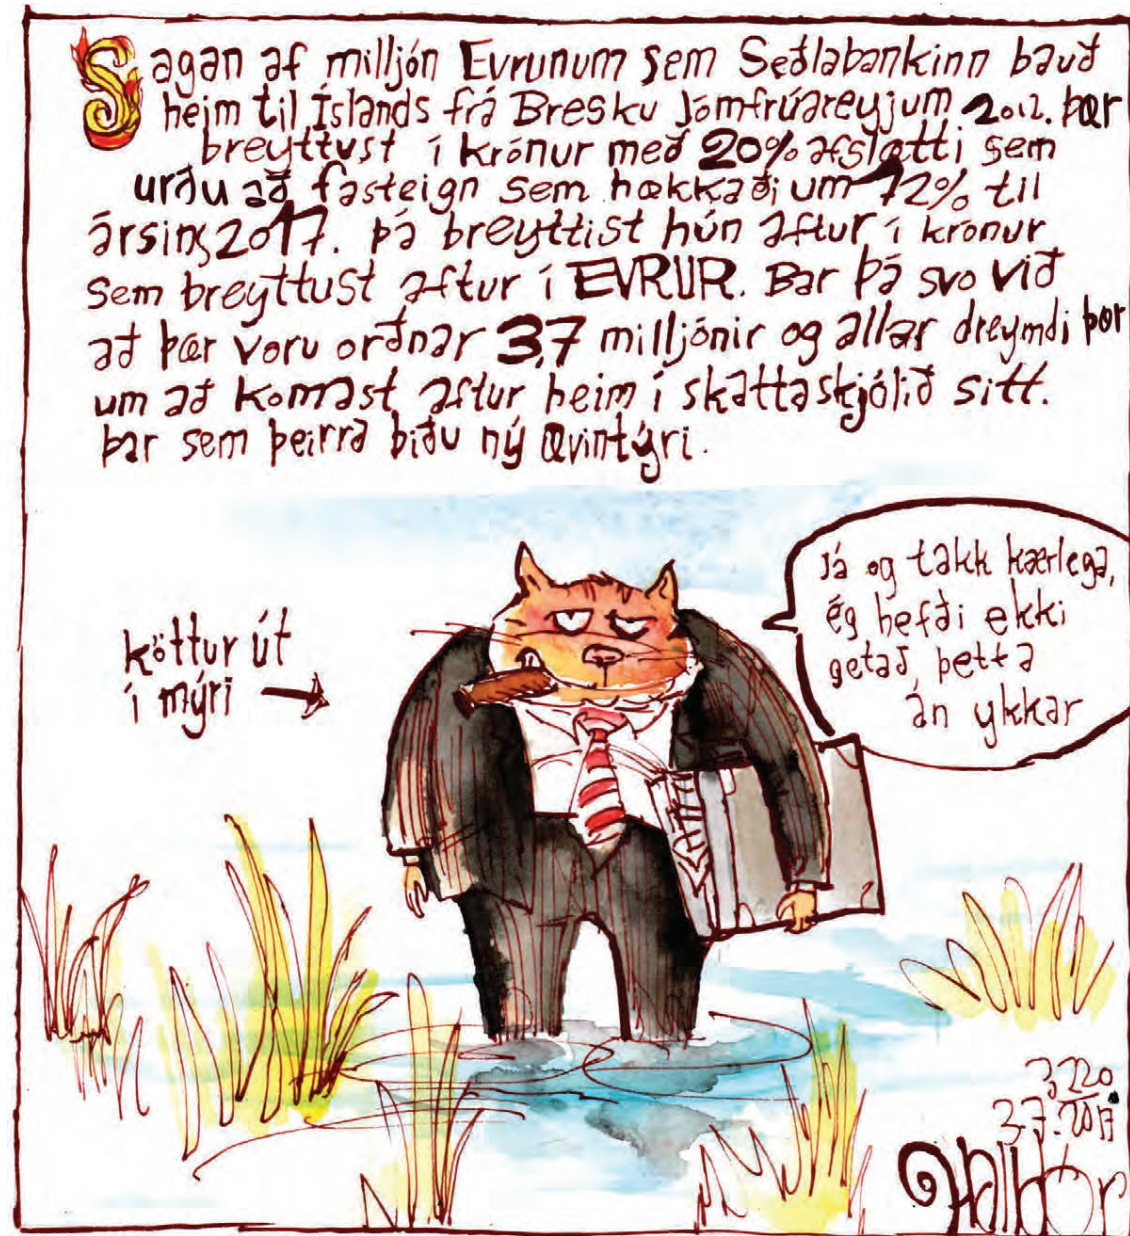 Sagan af milljón Evrunum sem Seðlabankinn bauð
heim til Íslands frá Bresku Jómfrúareyjum 2012. Þær
breyttust í krónur með 20% afslætti sem
urðu að fasteign sem hækkaði um 72% til
ársins 2017. Þá breyttist hún aftur í krónur
sem breyttust aftur í EVRUR. Bar þá svo við
að þær voru orðnar 3,7 milljónir og allar dreymdi þær
um að komast aftur heim í skattaskjólið sitt.
Þar sem þeirra biðu ný ævintýri.
Já og takk kærlega,
ég hefði ekki
getað þetta
án ykkar
köttur út
í mýri
3.7. 2017
Halldór